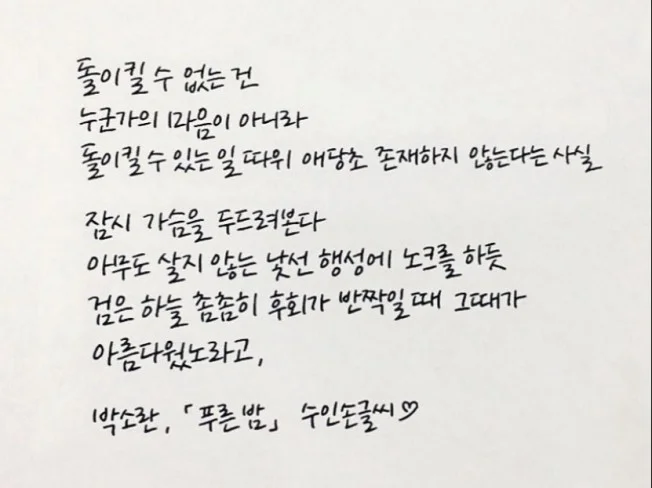 돌이킬 수 없는 건
누군가의 마음이 아니라
돌이킬 수 있는 일 따위 애당초 존재하지 않는다는 사실
잠시 가슴을 두드려본다
아무도 살지 않는 낯선 행성에 노크를 하듯
검은 하늘 촘촘히 후회가 반짝일 때 그때가
아름다웠노라고,
박소란, 「푸른 밤」 수인손글씨♡